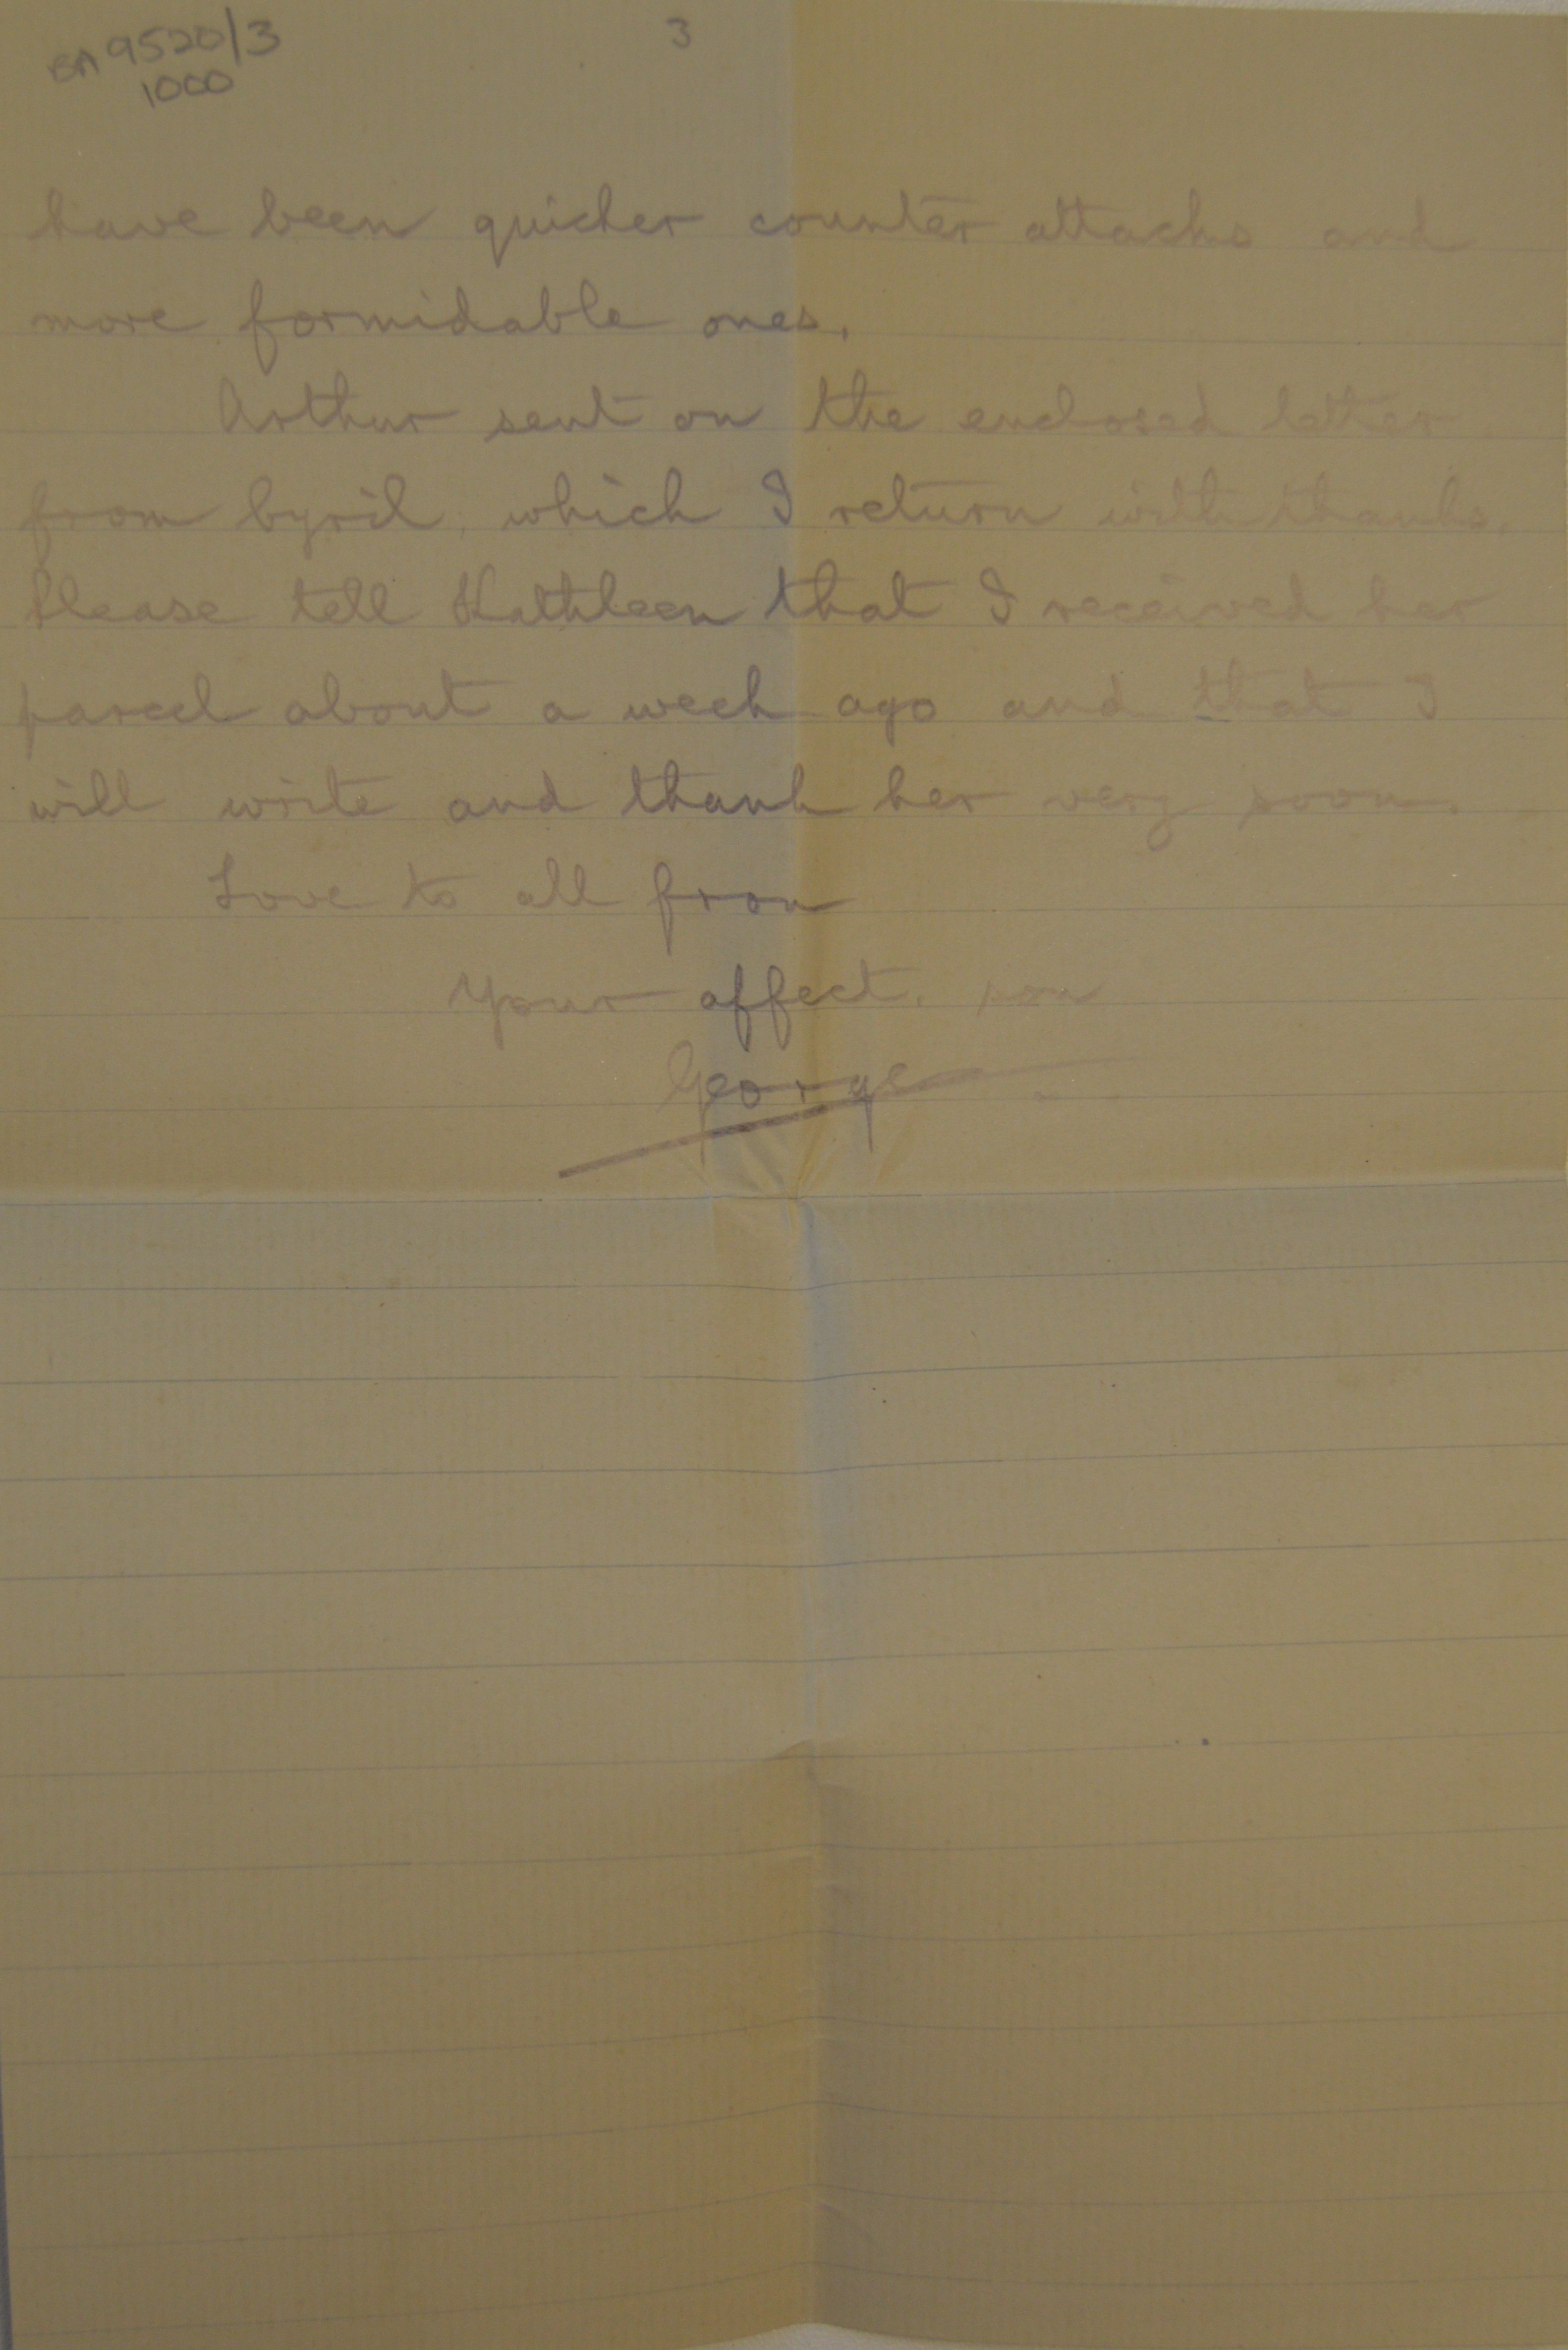 BA 9520/3
1000
3
have been quicker counter attacks and
more formidable ones.
Arthur sent on the enclosed letter
from Cyril, which I return with thanks.
Please tell Kathleen that I received her
parcel about a week ago and that I
will write and thank her very soon.
Love to all from
Your affect. son
George